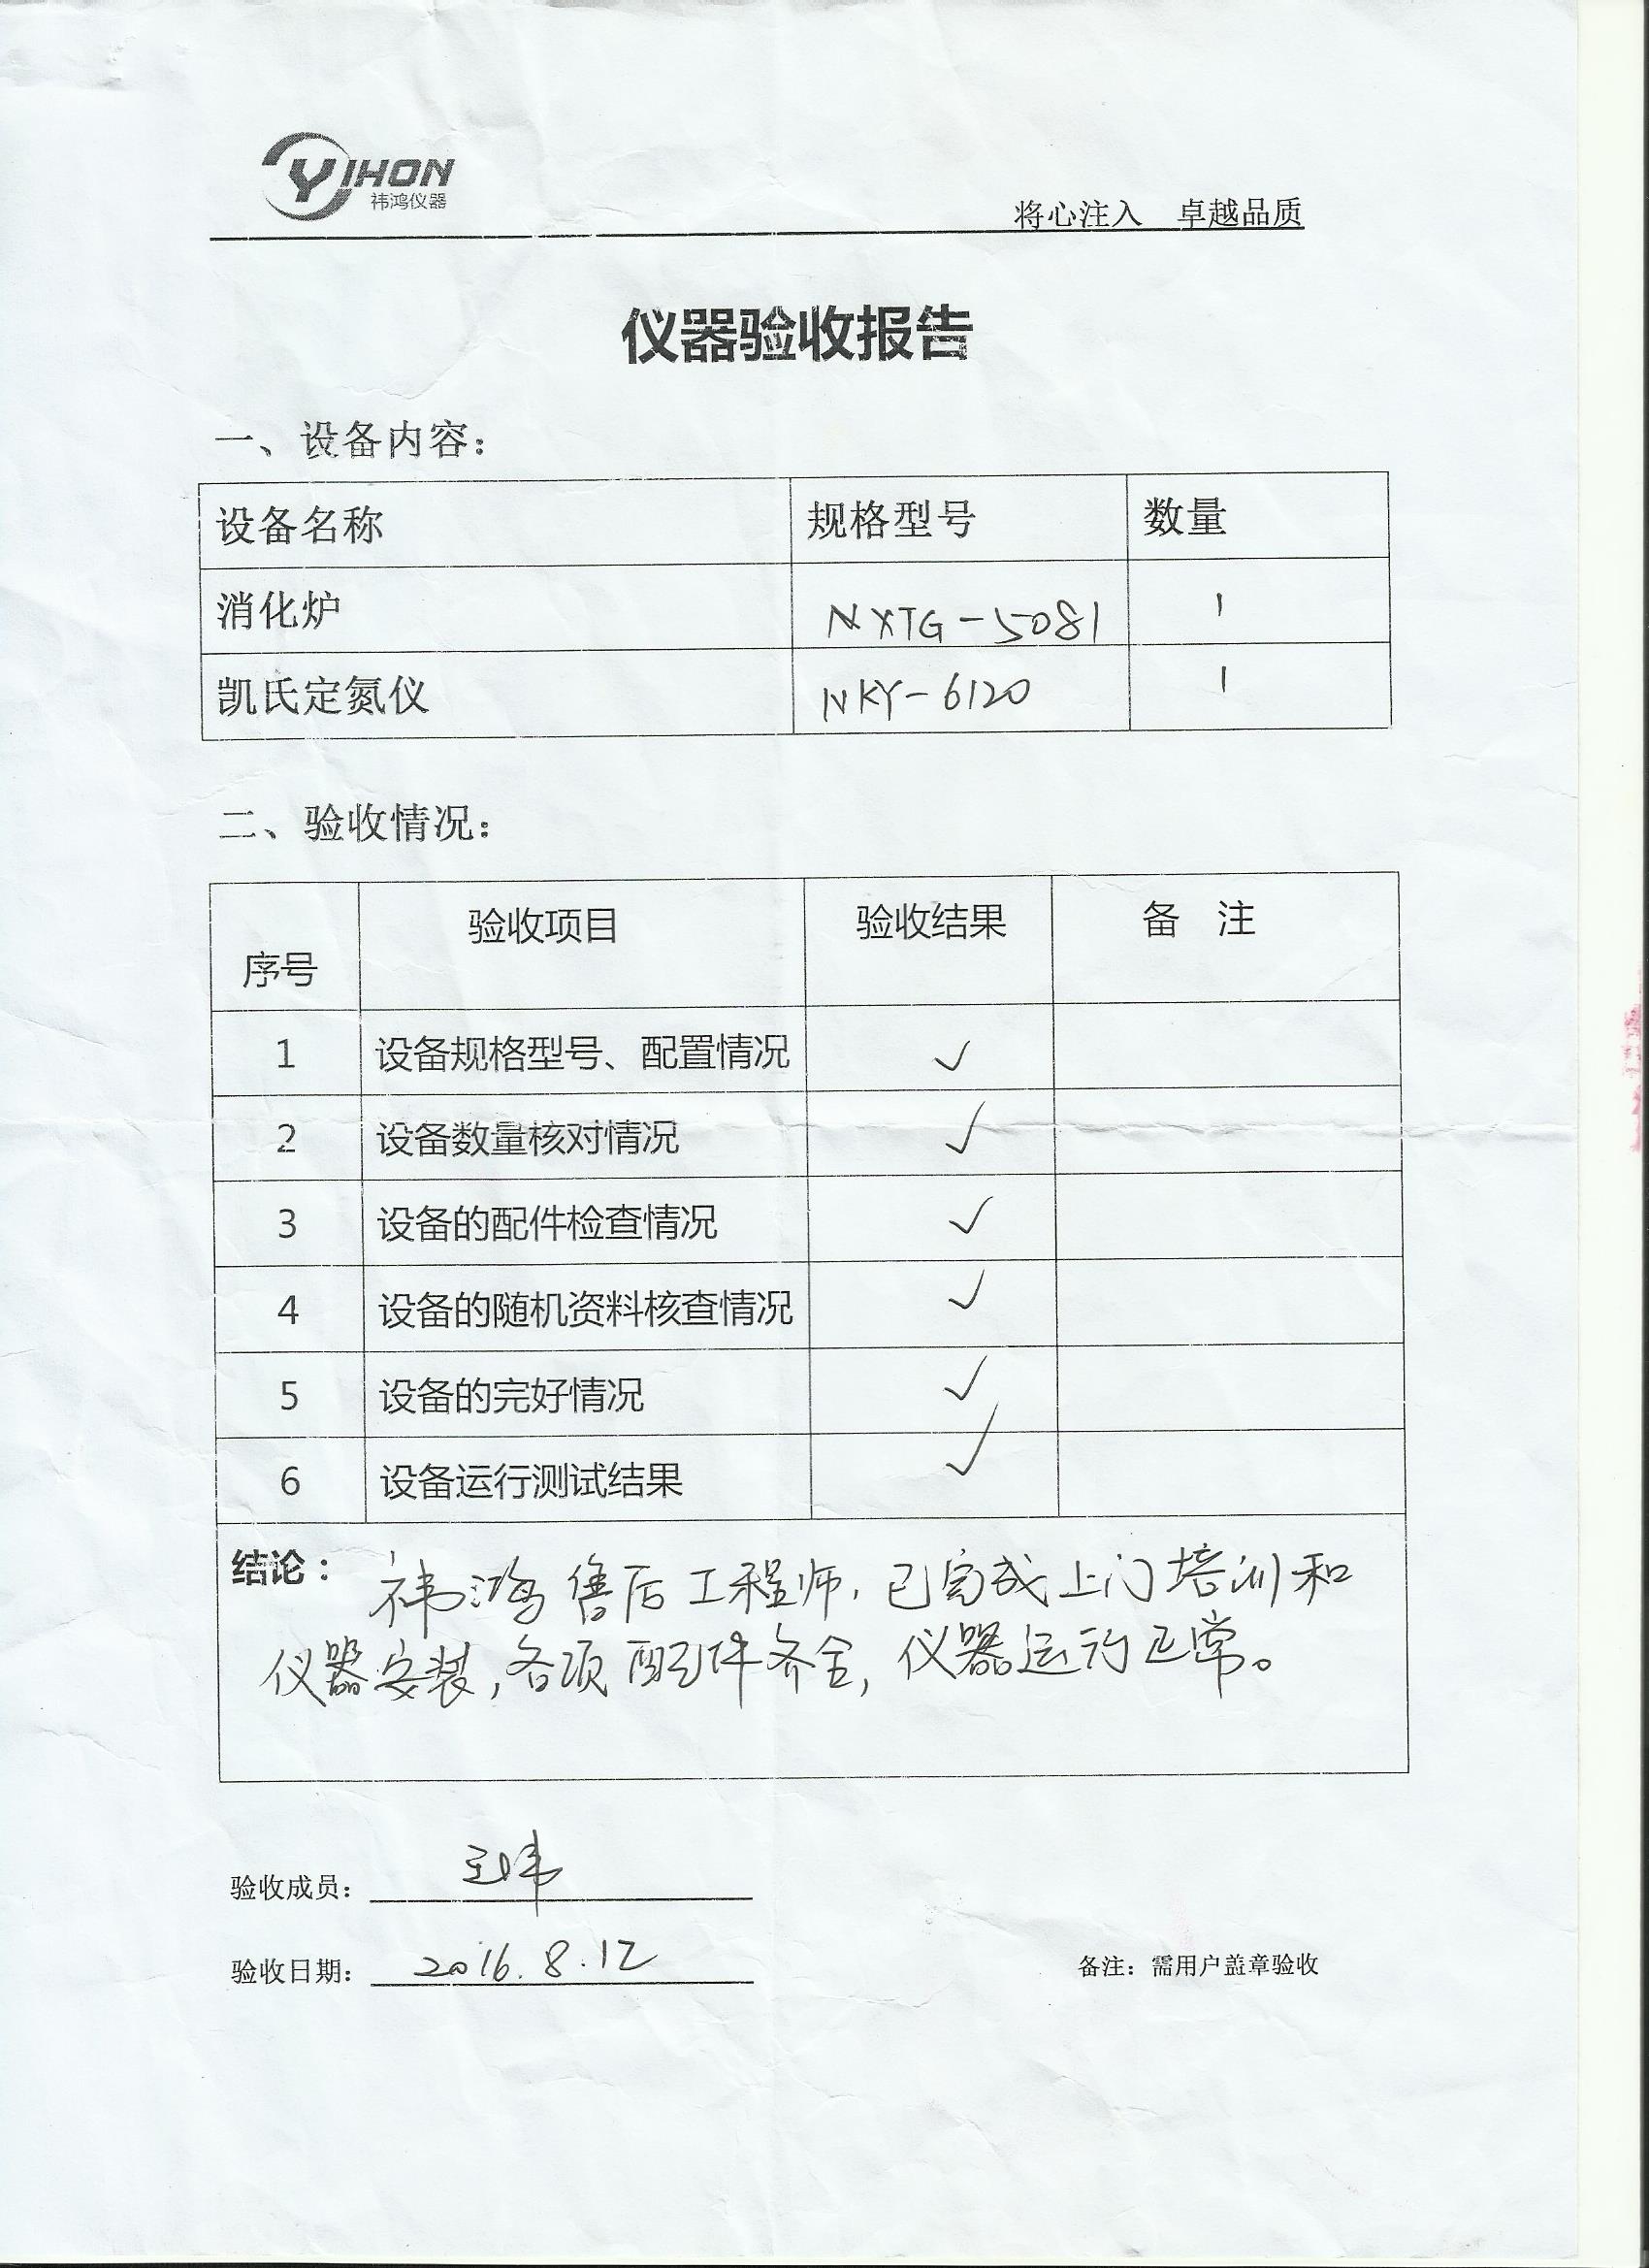 YIHON
祎鸿仪器
将心注入 卓越品质
仪器验收报告
一、设备内容：
设备名称 规格型号 数量
消化炉 NXTG-5081 1
凯氏定氮仪 NKY-6120 1
二、验收情况：
序号 验收项目 验收结果 备 注
1 设备规格型号、配置情况 ✓
2 设备数量核对情况 ✓
3 设备的配件检查情况 ✓
4 设备的随机资料核查情况 ✓
5 设备的完好情况 ✓
6 设备运行测试结果 ✓
结论：祎鸿售后工程师，已完成上门培训和
仪器安装，各项配件齐全，仪器运行正常。
验收成员：
验收日期：2016.8.12 备注：需用户盖章验收